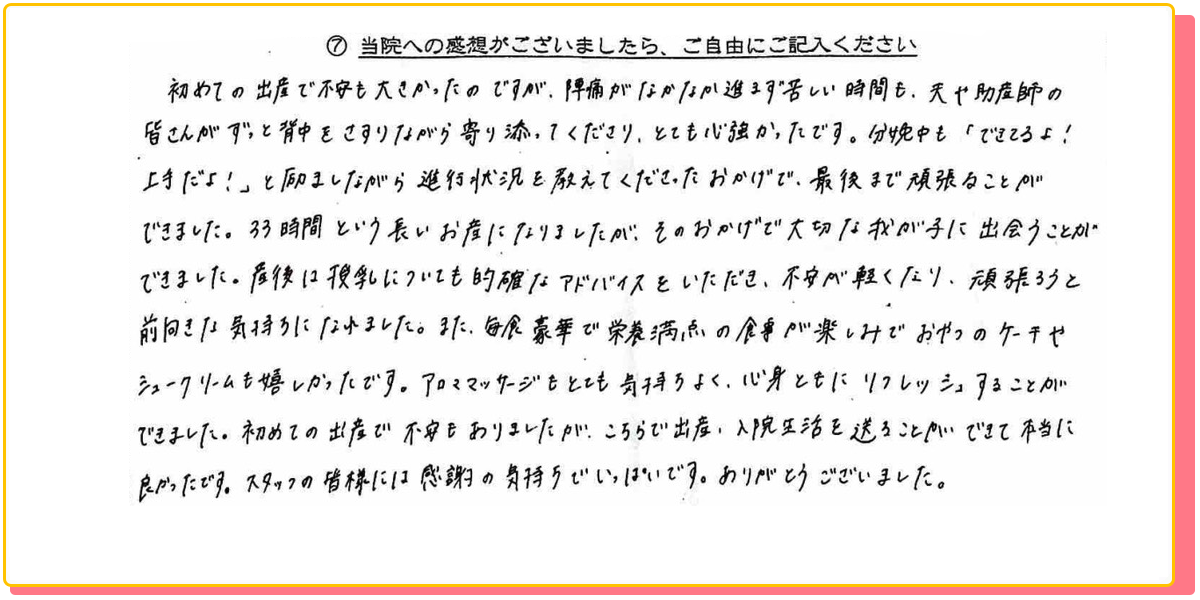 ⑦ 当院への感想がございましたら、ご自由にご記入ください
初めての出産で不安も大きかったのですが、陣痛がなかなか進まず苦しい時間も、夫や助産師の
皆さんがずっと背中をさすりながら寄り添ってくださり、とても心強かったです。分娩中も「できてるよ！
上手だよ！」と励ましながら進行状況を教えてくださったおかげで、最後まで頑張ることが
できました。33時間という長いお産になりましたが、そのおかげで大切な我が子に出会うことが
できました。産後は授乳についても的確なアドバイスをいただき、不安が軽くなり、頑張ろうと
前向きな気持ちになれました。また、毎食豪華で栄養満点の食事が楽しみでおやつのケーキや
シュークリームも嬉しかったです。アロママッサージもとても気持ちよく、心身ともにリフレッシュすることが
できました。初めての出産で不安もありましたが、こちらで出産、入院生活を送ることができて本当に
良かったです。スタッフの皆様には感謝の気持ちでいっぱいです。ありがとうございました。